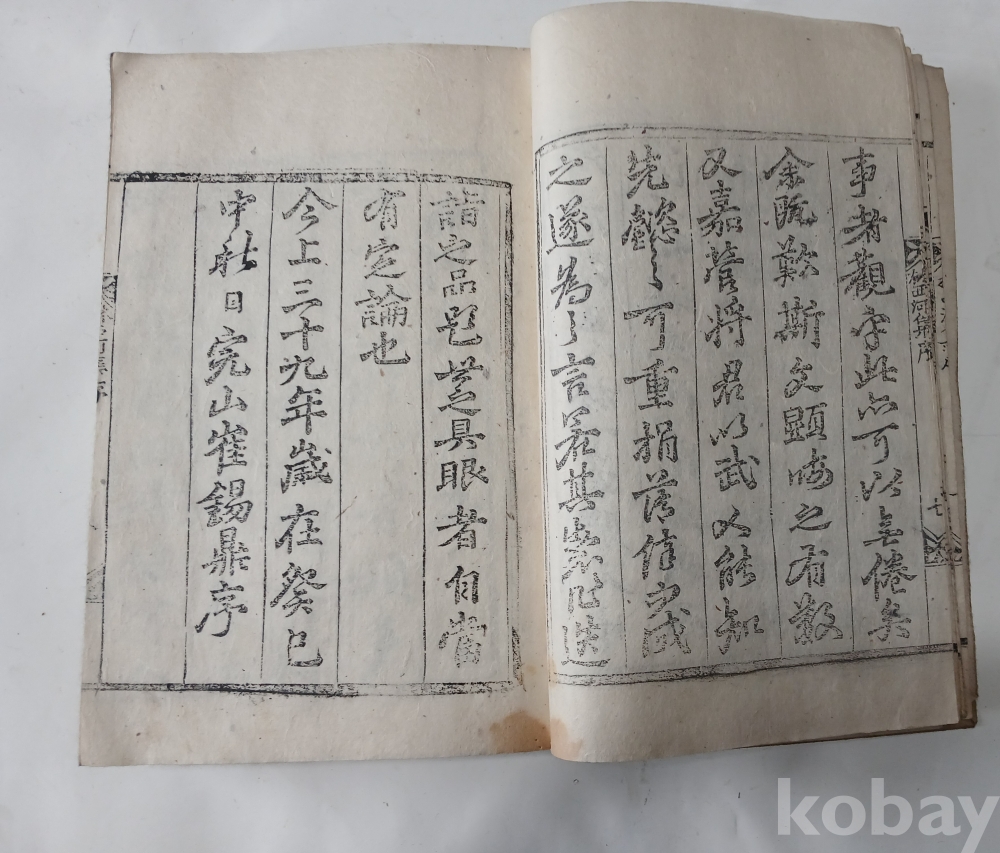 事者觀乎此亦可以無倦矣
余既歎斯文顯晦之有數
又嘉營將君以武人能知
先懿之可重捐俸信成
之遂為之言若其
詣之品題世之具眼者自當
有定論也
今上三十九年歲在癸巳
中秋日完山崔錫鼎序
七
kobay